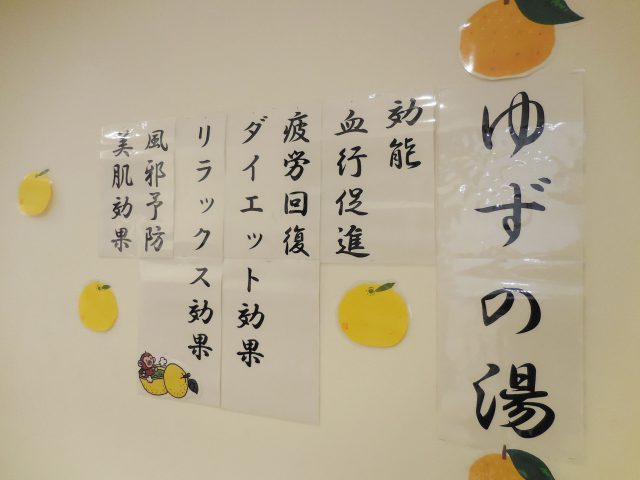 ゆずの湯
効能
血行促進
疲労回復
ダイエット効果
リラックス効果
風邪予防
美肌効果